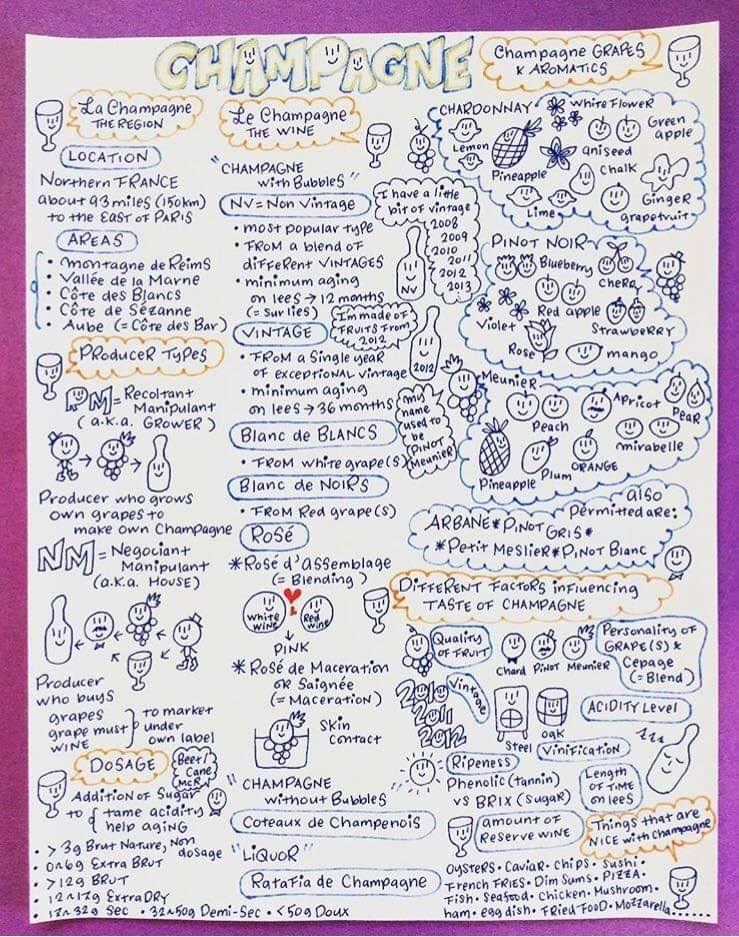 CHAMPAGNE
La Champagne
THE REGION
LOCATION
Northern FRANCE
about 93 miles (150km)
to the EAST of PARIS
AREAS
• Montagne de Reims
• Vallée de la Marne
• Côte des Blancs
• Côte de Sézanne
• Aube (= Côte des Bar)
PRODUCER TYPES
RM = Recoltant
Manipulant
(a.k.a. GROWER)
Producer who grows
own grapes to
make own Champagne
NM = Negociant
Manipulant
(a.k.a. HOUSE)
Producer
who buys
grapes
grape must
WINE
to market
under
own label
DOSAGE
Beet/
Cane
MCR
Addition of Sugar
to tame acidity
help aging
• > 3g Brut Nature, Non dosage
• 0~6g Extra BRUT
• > 12g BRUT
• 12~17g Extra DRY
• 17~32g Sec • 32~50g Demi-Sec • <50g Doux
Le Champagne
THE WINE
"CHAMPAGNE
with Bubbles"
NV = Non Vintage
• most popular type
• FROM a blend of
different VINTAGES
• minimum aging
on lees → 12 months
(= Sur lies)
I have a little
bit of vintage
2008
2009
2010
2011
2012
2013
NV
VINTAGE
I'm made of
FRUITS From
2012
• FROM a Single year
of exceptional vintage
• minimum aging
on lees → 36 months
2012
Blanc de BLANCS
• FROM white grape(s)
my
name
used to
be
PINOT
Meunier
Blanc de NOIRS
• FROM Red grape(s)
Rosé
*Rosé d'assemblage
(= Blending)
White
WINE
&
Red
wine
PINK
* Rosé de Maceration
OR Saignée
(= Maceration)
Skin
contact
"CHAMPAGNE
without Bubbles"
Coteaux de Champenois
"LIQUOR"
Ratafia de Champagne
Champagne GRAPES
& AROMATICS
CHARDONNAY
White Flower
Lemon
Green
apple
Pineapple
aniseed
Chalk
Lime
Ginger
grapefruit
PINOT NOIR
Blueberry
Cherry
Red apple
Violet
Strawberry
Rose
mango
Meunier
Peach
Apricot
Pear
mirabelle
Pineapple
Plum
ORANGE
also
Permitted are:
ARBANE * PINOT
GRIS *
*Petit Meslier * Pinot Blanc
DIFFERENT FACTORS influencing
TASTE OF CHAMPAGNE
Quality
OF FRUIT
Chard Pinot Meunier
Personality of
GRAPE(S) &
Cepage
(= Blend)
2010
2011
2012
Vintage
Steel
oak
ACIDITY Level
Vinification
zzz
Ripeness
Phenolic (tannin)
vs BRIX (Sugar)
Length
OF TIME
on lees
amount of
Reserve WINE
Things that are
NICE with Champagne
OYSTERS • Caviar • Chips • Sushi •
French FRIES • Dim Sums • PIZZA •
Fish • Seafood • Chicken • Mushroom •
ham • egg dish • Fried Food • Mozzarella......